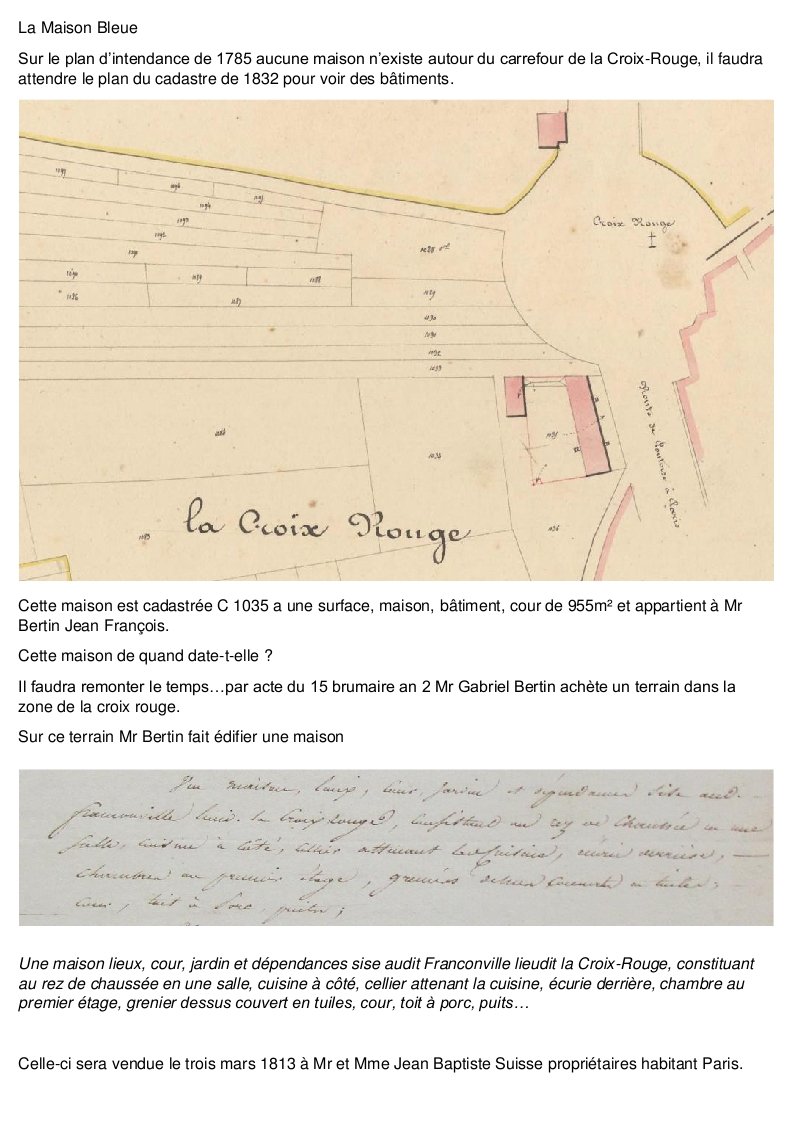 La Maison Bleue
Sur le plan d’intendance de 1785 aucune maison n’existe autour du carrefour de la Croix-Rouge, il faudra
attendre le plan du cadastre de 1832 pour voir des bâtiments.
Croix Rouge
la Croix Rouge
Route de à
Cette maison est cadastrée C 1035 a une surface, maison, bâtiment, cour de 955m² et appartient à Mr
Bertin Jean François.
Cette maison de quand date-t-elle ?
Il faudra remonter le temps…par acte du 15 brumaire an 2 Mr Gabriel Bertin achète un terrain dans la
zone de la croix rouge.
Sur ce terrain Mr Bertin fait édifier une maison
maison, lieux, cour, jardin et dépendances sise aud.
franconville la Croix rouge, au rez de Chaussée en une
salle, cuisine à côté, cellier attenant la cuisine, écurie derrière,
chambre au premier étage, grenier dessus couvert en tuiles,
cour, toit à porc, puits;
Une maison lieux, cour, jardin et dépendances sise audit Franconville lieudit la Croix-Rouge, constituant
au rez de chaussée en une salle, cuisine à côté, cellier attenant la cuisine, écurie derrière, chambre au
premier étage, grenier dessus couvert en tuiles, cour, toit à porc, puits…
Celle-ci sera vendue le trois mars 1813 à Mr et Mme Jean Baptiste Suisse propriétaires habitant Paris.